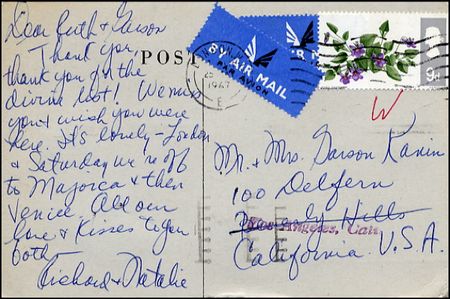 Dear Ruth & Garson
Thank you,
thank you for the
divine last! We miss
you & wish you were
here. It's lovely - London
& Saturday we're off
to Majorca & then
Venice. All our
love & kisses to you
both
Richard & Natalie
POST
BY AIR MAIL
PAR AVION
BY AIR MAIL
1967
E
9D
W
Mr. & Mrs. Garson Kanin
100 Delfern
Beverly Hills
Los Angeles, Calif
California U.S.A.